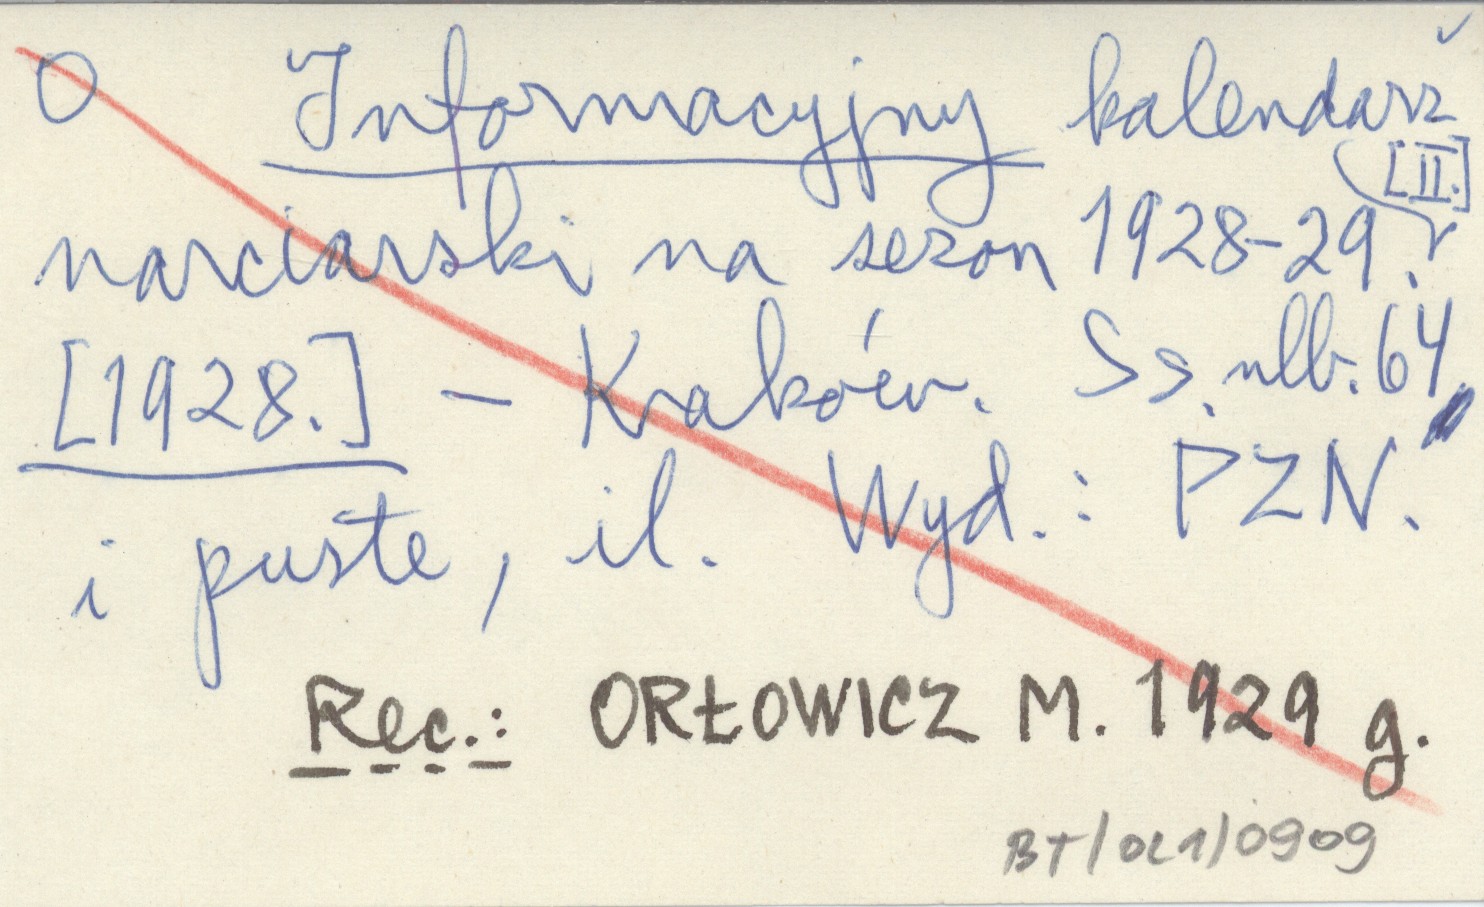 O Informacyjny kalendarz
[II.]
narciarski na sezon 1928-29 r.
[1928.] - Kraków. Ss. nlb. 64
i puste, il. Wyd.: PZN.
Rec.: ORŁOWICZ M. 1929 g.
BT/OL1/0909